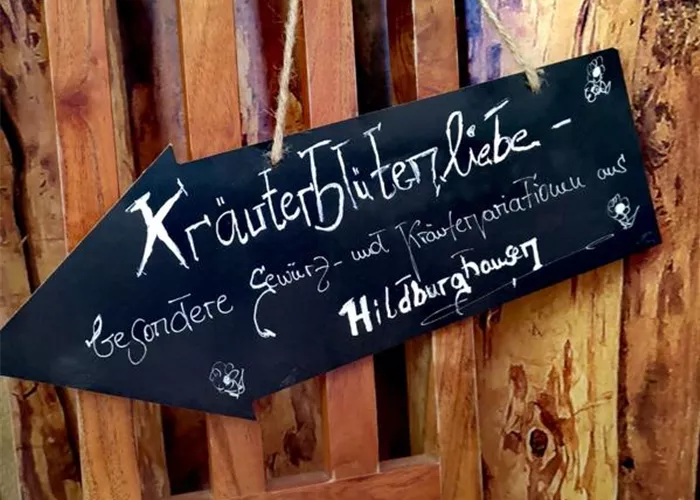 Kräuterblütenliebe -
besondere Gewürz- und Kräutervariationen aus
Hildburghausen